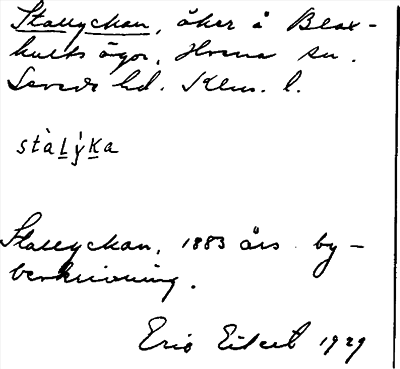 Stallyckan, åker å Blax-
hults ägor, Hvena sn.
Sevede hd. Klm. l.
stàLýKa
Stallyckan, 1883 års by-
beskrivning.
Eric Eilert 1929